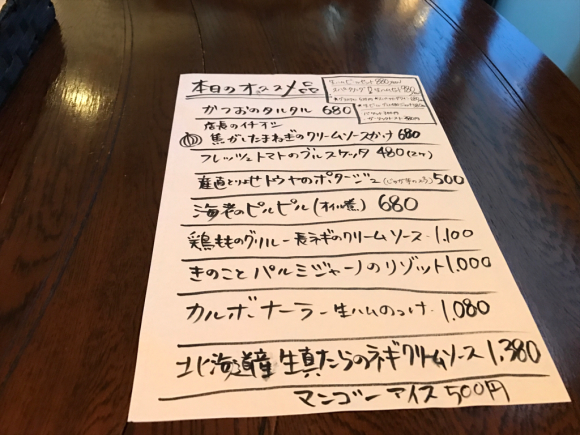 本日のオススメ品
かつおのタルタル 680
店長のイチオシ
焦がしたまねぎのクリームソースがけ 680
フレッシュトマトのブルスケッタ 480(2ケ)
産直とりよせトウヤのポタージュ(じゃがいも) 500
海老のピルピル(オイル煮) 680
鶏もものグリル-長ネギのクリームソース・1,100
きのことパルミジャーノのリゾット 1,000
カルボナーラ-生ハムのっけ・1,080
北海道産生真たらのネギクリームソース 1,380
マンゴーアイス 500円